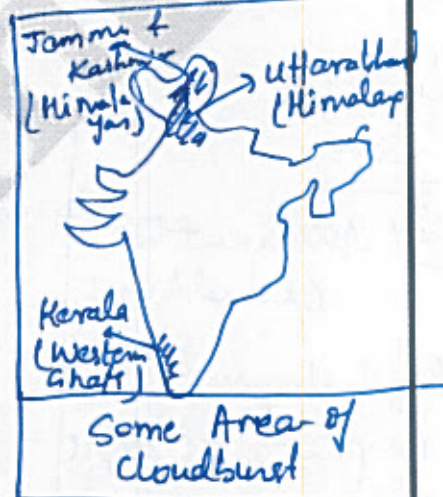 Jammu &
Kashmir
(Himala
yan)
Uttarakhand
(Himalay
Kerala
(Western
Ghats)
Some Area of
Cloudburst